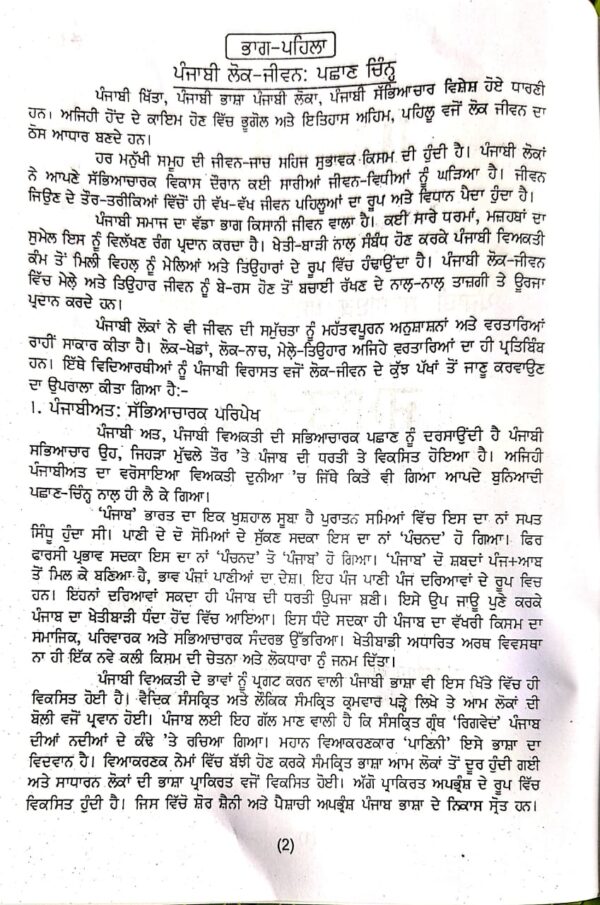 ਭਾਗ-ਪਹਿਲਾ
ਪੰਜਾਬੀ ਲੋਕ-ਜੀਵਨ: ਪਛਾਣ ਚਿੰਨ੍ਹ
ਪੰਜਾਬੀ ਖਿੱਤਾ, ਪੰਜਾਬੀ ਭਾਸ਼ਾ ਪੰਜਾਬੀ ਲੋਕਾ, ਪੰਜਾਬੀ ਸੱਭਿਆਚਾਰ ਵਿਸ਼ੇਸ਼ ਹੋਏ ਧਾਰਣੀ
ਹਨ। ਅਜਿਹੀ ਹੋਂਦ ਦੇ ਕਾਇਮ ਹੋਣ ਵਿੱਚ ਭੂਗੋਲ ਅਤੇ ਇਤਿਹਾਸ ਅਹਿਮ, ਪਹਿਲੂ ਵਜੋਂ ਲੋਕ ਜੀਵਨ ਦਾ
ਠੋਸ ਆਧਾਰ ਬਣਦੇ ਹਨ।
ਹਰ ਮਨੁੱਖੀ ਸਮੂਹ ਦੀ ਜੀਵਨ-ਜਾਚ ਸਹਿਜ ਸੁਭਾਵਕ ਕਿਸਮ ਦੀ ਹੁੰਦੀ ਹੈ। ਪੰਜਾਬੀ ਲੋਕਾਂ
ਨੇ ਆਪਣੇ ਸੱਭਿਆਚਾਰਕ ਵਿਕਾਸ ਦੌਰਾਨ ਕਈ ਸਾਰੀਆਂ ਜੀਵਨ-ਵਿਧੀਆਂ ਨੂੰ ਘੜਿਆ ਹੈ। ਜੀਵਨ
ਜਿਉਣ ਦੇ ਤੌਰ-ਤਰੀਕਿਆਂ ਵਿੱਚੋਂ ਹੀ ਵੱਖ-ਵੱਖ ਜੀਵਨ ਪਹਿਲੂਆਂ ਦਾ ਰੂਪ ਅਤੇ ਵਿਧਾਨ ਪੈਦਾ ਹੁੰਦਾ ਹੈ।
ਪੰਜਾਬੀ ਸਮਾਜ ਦਾ ਵੱਡਾ ਭਾਗ ਕਿਸਾਨੀ ਜੀਵਨ ਵਾਲਾ ਹੈ। ਕਈ ਸਾਰੇ ਧਰਮਾਂ, ਮਜ਼ਹਬਾਂ ਦਾ
ਸੁਮੇਲ ਇਸ ਨੂੰ ਵਿਲੱਖਣ ਰੰਗ ਪ੍ਰਦਾਨ ਕਰਦਾ ਹੈ। ਖੇਤੀ-ਬਾੜੀ ਨਾਲ਼ ਸੰਬੰਧ ਹੋਣ ਕਰਕੇ ਪੰਜਾਬੀ ਵਿਅਕਤੀ
ਕੰਮ ਤੋਂ ਮਿਲੀ ਵਿਹਲ ਨੂੰ ਮੇਲਿਆਂ ਅਤੇ ਤਿਉਹਾਰਾਂ ਦੇ ਰੂਪ ਵਿੱਚ ਹੰਢਾਉਂਦਾ ਹੈ। ਪੰਜਾਬੀ ਲੋਕ-ਜੀਵਨ
ਵਿੱਚ ਮੇਲੇ ਅਤੇ ਤਿਉਹਾਰ ਜੀਵਨ ਨੂੰ ਬੇ-ਰਸ ਹੋਣ ਤੋਂ ਬਚਾਈ ਰੱਖਣ ਦੇ ਨਾਲ਼-ਨਾਲ਼ ਤਾਜ਼ਗੀ ਤੇ ਊਰਜਾ
ਪ੍ਰਦਾਨ ਕਰਦੇ ਹਨ।
ਪੰਜਾਬੀ ਲੋਕਾਂ ਨੇ ਵੀ ਜੀਵਨ ਦੀ ਸਮੁੱਚਤਾ ਨੂੰ ਮਹੱਤਵਪੂਰਨ ਅਨੁਸ਼ਾਸ਼ਨਾਂ ਅਤੇ ਵਰਤਾਰਿਆਂ
ਰਾਹੀਂ ਸਾਕਾਰ ਕੀਤਾ ਹੈ। ਲੋਕ-ਖੇਡਾਂ, ਲੋਕ-ਨਾਚ, ਮੇਲੇ-ਤਿਉਹਾਰ ਅਜਿਹੇ ਵਰਤਾਰਿਆਂ ਦਾ ਹੀ ਪ੍ਰਤਿਬਿੰਬ
ਹਨ। ਇੱਥੇ ਵਿਦਿਆਰਥੀਆਂ ਨੂੰ ਪੰਜਾਬੀ ਵਿਰਾਸਤ ਵਜੋਂ ਲੋਕ-ਜੀਵਨ ਦੇ ਕੁੱਝ ਪੱਖਾਂ ਤੋਂ ਜਾਣੂ ਕਰਵਾਉਣ
ਦਾ ਉਪਰਾਲਾ ਕੀਤਾ ਗਿਆ ਹੈ:-
1. ਪੰਜਾਬੀਅਤ: ਸੱਭਿਆਚਾਰਕ ਪਰਿਪੇਖ
ਪੰਜਾਬੀ ਅਤ, ਪੰਜਾਬੀ ਵਿਅਕਤੀ ਦੀ ਸਭਿਆਚਾਰਕ ਪਛਾਣ ਨੂੰ ਦਰਸਾਉਂਦੀ ਹੈ ਪੰਜਾਬੀ
ਸਭਿਆਚਾਰ ਉਹ, ਜਿਹੜਾ ਮੁੱਢਲੇ ਤੌਰ 'ਤੇ ਪੰਜਾਬ ਦੀ ਧਰਤੀ ਤੇ ਵਿਕਸਿਤ ਹੋਇਆ ਹੈ। ਅਜਿਹੀ
ਪੰਜਾਬੀਅਤ ਦਾ ਵਰੋਸਾਇਆ ਵਿਅਕਤੀ ਦੁਨੀਆ 'ਚ ਜਿੱਥੇ ਕਿਤੇ ਵੀ ਗਿਆ ਆਪਦੇ ਬੁਨਿਆਦੀ
ਪਛਾਣ-ਚਿੰਨ੍ਹ ਨਾਲ਼ ਹੀ ਲੈ ਕੇ ਗਿਆ।
'ਪੰਜਾਬ' ਭਾਰਤ ਦਾ ਇਕ ਖੁਸ਼ਹਾਲ ਸੂਬਾ ਹੈ ਪੁਰਾਤਨ ਸਮਿਆਂ ਵਿੱਚ ਇਸ ਦਾ ਨਾਂ ਸਪਤ
ਸਿੰਧੂ ਹੁੰਦਾ ਸੀ। ਪਾਣੀ ਦੇ ਦੋ ਸੋਮਿਆਂ ਦੇ ਸੁੱਕਣ ਸਦਕਾ ਇਸ ਦਾ ਨਾਂ 'ਪੰਚਨਦ' ਹੋ ਗਿਆ। ਫਿਰ
ਫਾਰਸੀ ਪ੍ਰਭਾਵ ਸਦਕਾ ਇਸ ਦਾ ਨਾਂ 'ਪੰਚਨਦ' ਤੋਂ 'ਪੰਜਾਬ' ਹੋ ਗਿਆ। 'ਪੰਜਾਬ' ਦੋ ਸ਼ਬਦਾਂ ਪੰਜ+ਆਬ
ਤੋਂ ਮਿਲ ਕੇ ਬਣਿਆ ਹੈ, ਭਾਵ ਪੰਜਾਂ ਪਾਣੀਆਂ ਦਾ ਦੇਸ਼। ਇਹ ਪੰਜ ਪਾਣੀ ਪੰਜ ਦਰਿਆਵਾਂ ਦੇ ਰੂਪ ਵਿਚ
ਹਨ। ਇਹਨਾਂ ਦਰਿਆਵਾਂ ਸਕਦਾ ਹੀ ਪੰਜਾਬ ਦੀ ਧਰਤੀ ਉਪਜਾ ਬਣੀ। ਇਸੇ ਉਪ ਜਾਊ ਪੁਣੇ ਕਰਕੇ
ਪੰਜਾਬ ਦਾ ਖੇਤੀਬਾੜੀ ਧੰਦਾ ਹੋਂਦ ਵਿੱਚ ਆਇਆ। ਇਸ ਧੰਦੇ ਸਦਕਾ ਹੀ ਪੰਜਾਬ ਦਾ ਵੱਖਰੀ ਕਿਸਮ ਦਾ
ਸਮਾਜਿਕ, ਪਰਿਵਾਰਕ ਅਤੇ ਸਭਿਆਚਾਰਕ ਸੰਦਰਭ ਉੱਭਰਿਆ। ਖੇਤੀਬਾੜੀ ਅਧਾਰਿਤ ਅਰਥ ਵਿਵਸਥਾ
ਨਾ ਹੀ ਇੱਕ ਨਵੇ ਕਲੀ ਕਿਸਮ ਦੀ ਚੇਤਨਾ ਅਤੇ ਲੋਕਧਾਰਾ ਨੂੰ ਜਨਮ ਦਿੱਤਾ।
ਪੰਜਾਬੀ ਵਿਅਕਤੀ ਦੇ ਭਾਵਾਂ ਨੂੰ ਪ੍ਰਗਟ ਕਰਨ ਵਾਲੀ ਪੰਜਾਬੀ ਭਾਸ਼ਾ ਵੀ ਇਸ ਖਿੱਤੇ ਵਿੱਚ ਹੀ
ਵਿਕਸਿਤ ਹੋਈ ਹੈ। ਵੈਦਿਕ ਸੰਸਕ੍ਰਿਤ ਅਤੇ ਲੌਕਿਕ ਸੰਮਕ੍ਰਿਤ ਕ੍ਰਮਵਾਰ ਪੜ੍ਹੇ ਲਿਖੇ ਤੇ ਆਮ ਲੋਕਾਂ ਦੀ
ਬੋਲੀ ਵਜੋਂ ਪ੍ਰਵਾਨ ਹੋਈ। ਪੰਜਾਬ ਲਈ ਇਹ ਗੱਲ ਮਾਣ ਵਾਲੀ ਹੈ ਕਿ ਸੰਸਕ੍ਰਿਤ ਗ੍ਰੰਥ 'ਰਿਗਵੇਦ' ਪੰਜਾਬ
ਦੀਆਂ ਨਦੀਆਂ ਦੇ ਕੰਢੇ 'ਤੇ ਰਚਿਆ ਗਿਆ। ਮਹਾਨ ਵਿਆਕਰਣਕਾਰ 'ਪਾਣਿਨੀ' ਇਸੇ ਭਾਸ਼ਾ ਦਾ
ਵਿਦਵਾਨ ਹੈ। ਵਿਆਕਰਣਕ ਨੇਮਾਂ ਵਿੱਚ ਬੱਝੀ ਹੋਣ ਕਰਕੇ ਸੰਮਕ੍ਰਿਤ ਭਾਸ਼ਾ ਆਮ ਲੋਕਾਂ ਤੋਂ ਦੂਰ ਹੁੰਦੀ ਗਈ
ਅਤੇ ਸਾਧਾਰਨ ਲੋਕਾਂ ਦੀ ਭਾਸ਼ਾ ਪ੍ਰਾਕਿਰਤ ਵਜੋਂ ਵਿਕਸਿਤ ਹੋਈ। ਅੱਗੋ ਪ੍ਰਾਕਿਰਤ ਅਪਭ੍ਰੰਸ਼ ਦੇ ਰੂਪ ਵਿੱਚ
ਵਿਕਸਿਤ ਹੁੰਦੀ ਹੈ। ਜਿਸ ਵਿੱਚੋਂ ਸ਼ੋਰ ਸ਼ੈਨੀ ਅਤੇ ਪੈਸ਼ਾਚੀ ਅਪਭ੍ਰੰਸ਼ ਪੰਜਾਬ ਭਾਸ਼ਾ ਦੇ ਨਿਕਾਸ ਸ੍ਰੋਤ ਹਨ।
(2)